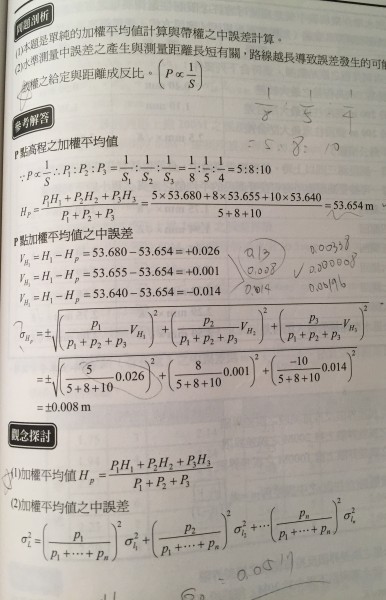 問題剖析
(1)本題是單純的加權平均值計算與帶權之中誤差計算。
(2)水準測量中誤差之產生與測量距離長短有關，路線越長導致誤差發生的可
故權之給定與距離成反比。(P∝1/S)
1/8 1/5 1/4
= 5 : 8 : 10
參考解答
P 點高程之加權平均值
∵P∝1/S ∴P₁:P₂:P₃ = 1/S₁:1/S₂:1/S₃ = 1/8:1/5:1/4 = 5:8:10
H_P = (P₁H₁+P₂H₂+P₃H₃)/(P₁+P₂+P₃) = (5×53.680+8×53.655+10×53.640)/(5+8+10) = 53.654 m
P 點加權平均值之中誤差
V_H₁ = H₁ − H_P = 53.680 − 53.654 = +0.026
V_H₁ = H₁ − H_P = 53.655 − 53.654 = +0.001
V_H₁ = H₁ − H_P = 53.640 − 53.654 = −0.014
0.13
0.008
σ_H_P = ±√((p₁/(p₁+p₂+p₃) V_H₁)² + (p₂/(p₁+p₂+p₃) V_H₂)² + (p₃/(p₁+p₂+p₃) V_H₃)²)
= ±√((5/(5+8+10) 0.026)² + (8/(5+8+10) 0.001)² + (−10/(5+8+10) 0.014)²)
= ±0.008 m
觀念探討
(1)加權平均值 H_P = (P₁H₁+P₂H₂+P₃H₃)/(P₁+P₂+P₃)
(2)加權平均值之中誤差
σ_L² = (p₁/(p₁+⋯+pₙ))² σ_l₁² + (p₂/(p₁+⋯+pₙ))² σ_l₂² + ⋯(pₙ/(p₁+⋯+pₙ))² σ_lₙ²